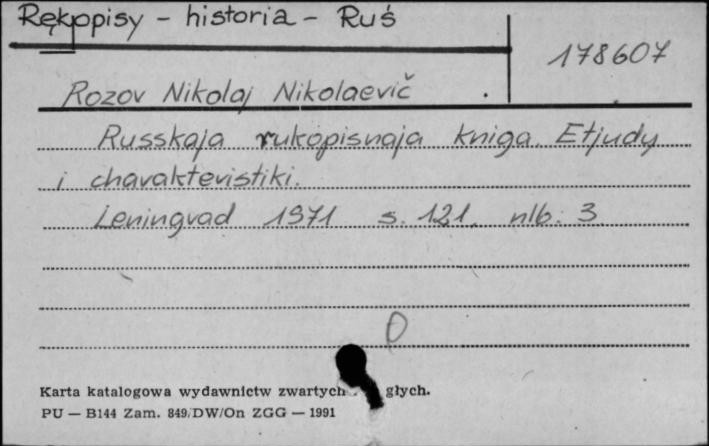 Rękopisy - historia - Ruś
178607
Rozov Nikolaj Nikolaevič
Russkaja rukopisnaja kniga. Etjudy
i charakteristiki.
Leningrad 1971 s. 121, nlb. 3
0
Karta katalogowa wydawnictw zwartych głych.
PU — B144 Zam. 849/DW/On ZGG — 1991